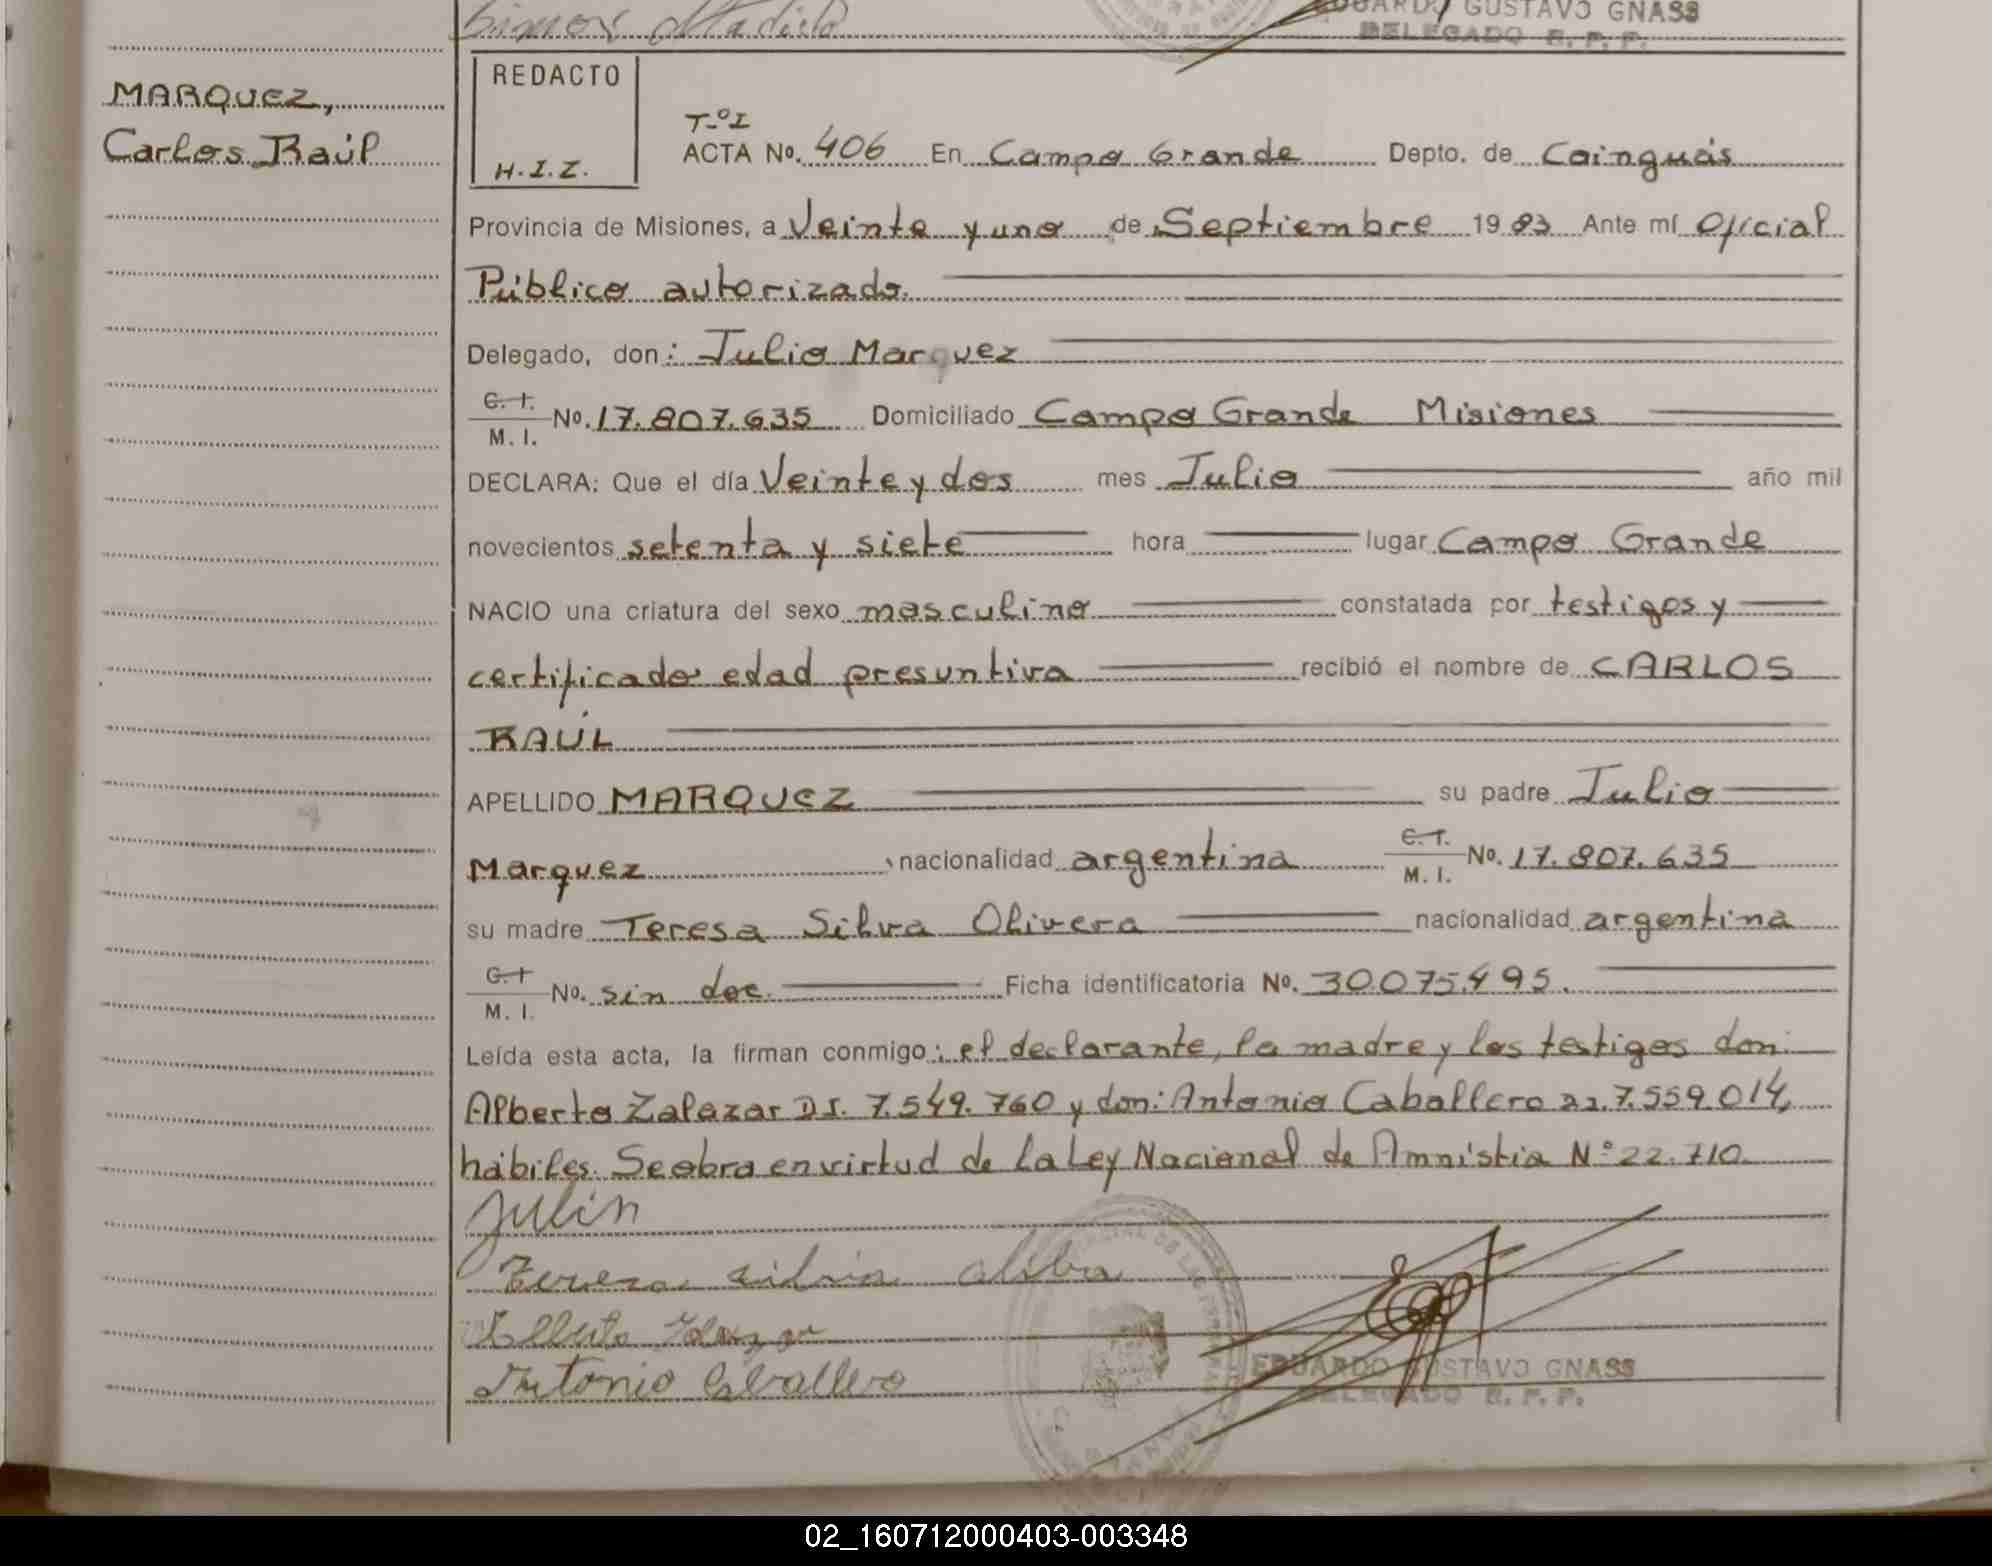 EDUARDO GUSTAVO GNASS
DELEGADO E. P. P.
MARQUEZ,
Carlos Raúl
REDACTO
H. I. Z.
T-º I
ACTA No. 406 En Campo Grande Depto. de Cainguás
Provincia de Misiones, a Veinte y uno de Septiembre 1983 Ante mí Oficial
Público autorizado.
Delegado, don: Julio Marquez
C. I. M. I. No. 17.807.635 Domiciliado Campo Grande Misiones
DECLARA: Que el día Veinte y dos mes Julio año mil
novecientos setenta y siete hora lugar Campo Grande
NACIO una criatura del sexo masculino constatada por testigos y
certificado edad presuntiva recibió el nombre de CARLOS
RAÚL
APELLIDO MARQUEZ su padre Julio
Marquez, nacionalidad argentina C. I. M. I. No. 17.807.635
su madre Teresa Silva Olivera nacionalidad argentina
C. I. M. I. No. sin doc. Ficha identificatoria No. 30075495.
Leída esta acta, la firman conmigo: el declarante, la madre y los testigos don:
Alberto Zalazar D.I. 7.549.760 y don: Antonio Caballero 7.559.014,
hábiles. Se obra en virtud de la Ley Nacional de Amnistia Nº 22.710
Julin
Antonio Caballero
EDUARDO GUSTAVO GNASS
DELEGADO E. P. P.
02_160712000403-003348